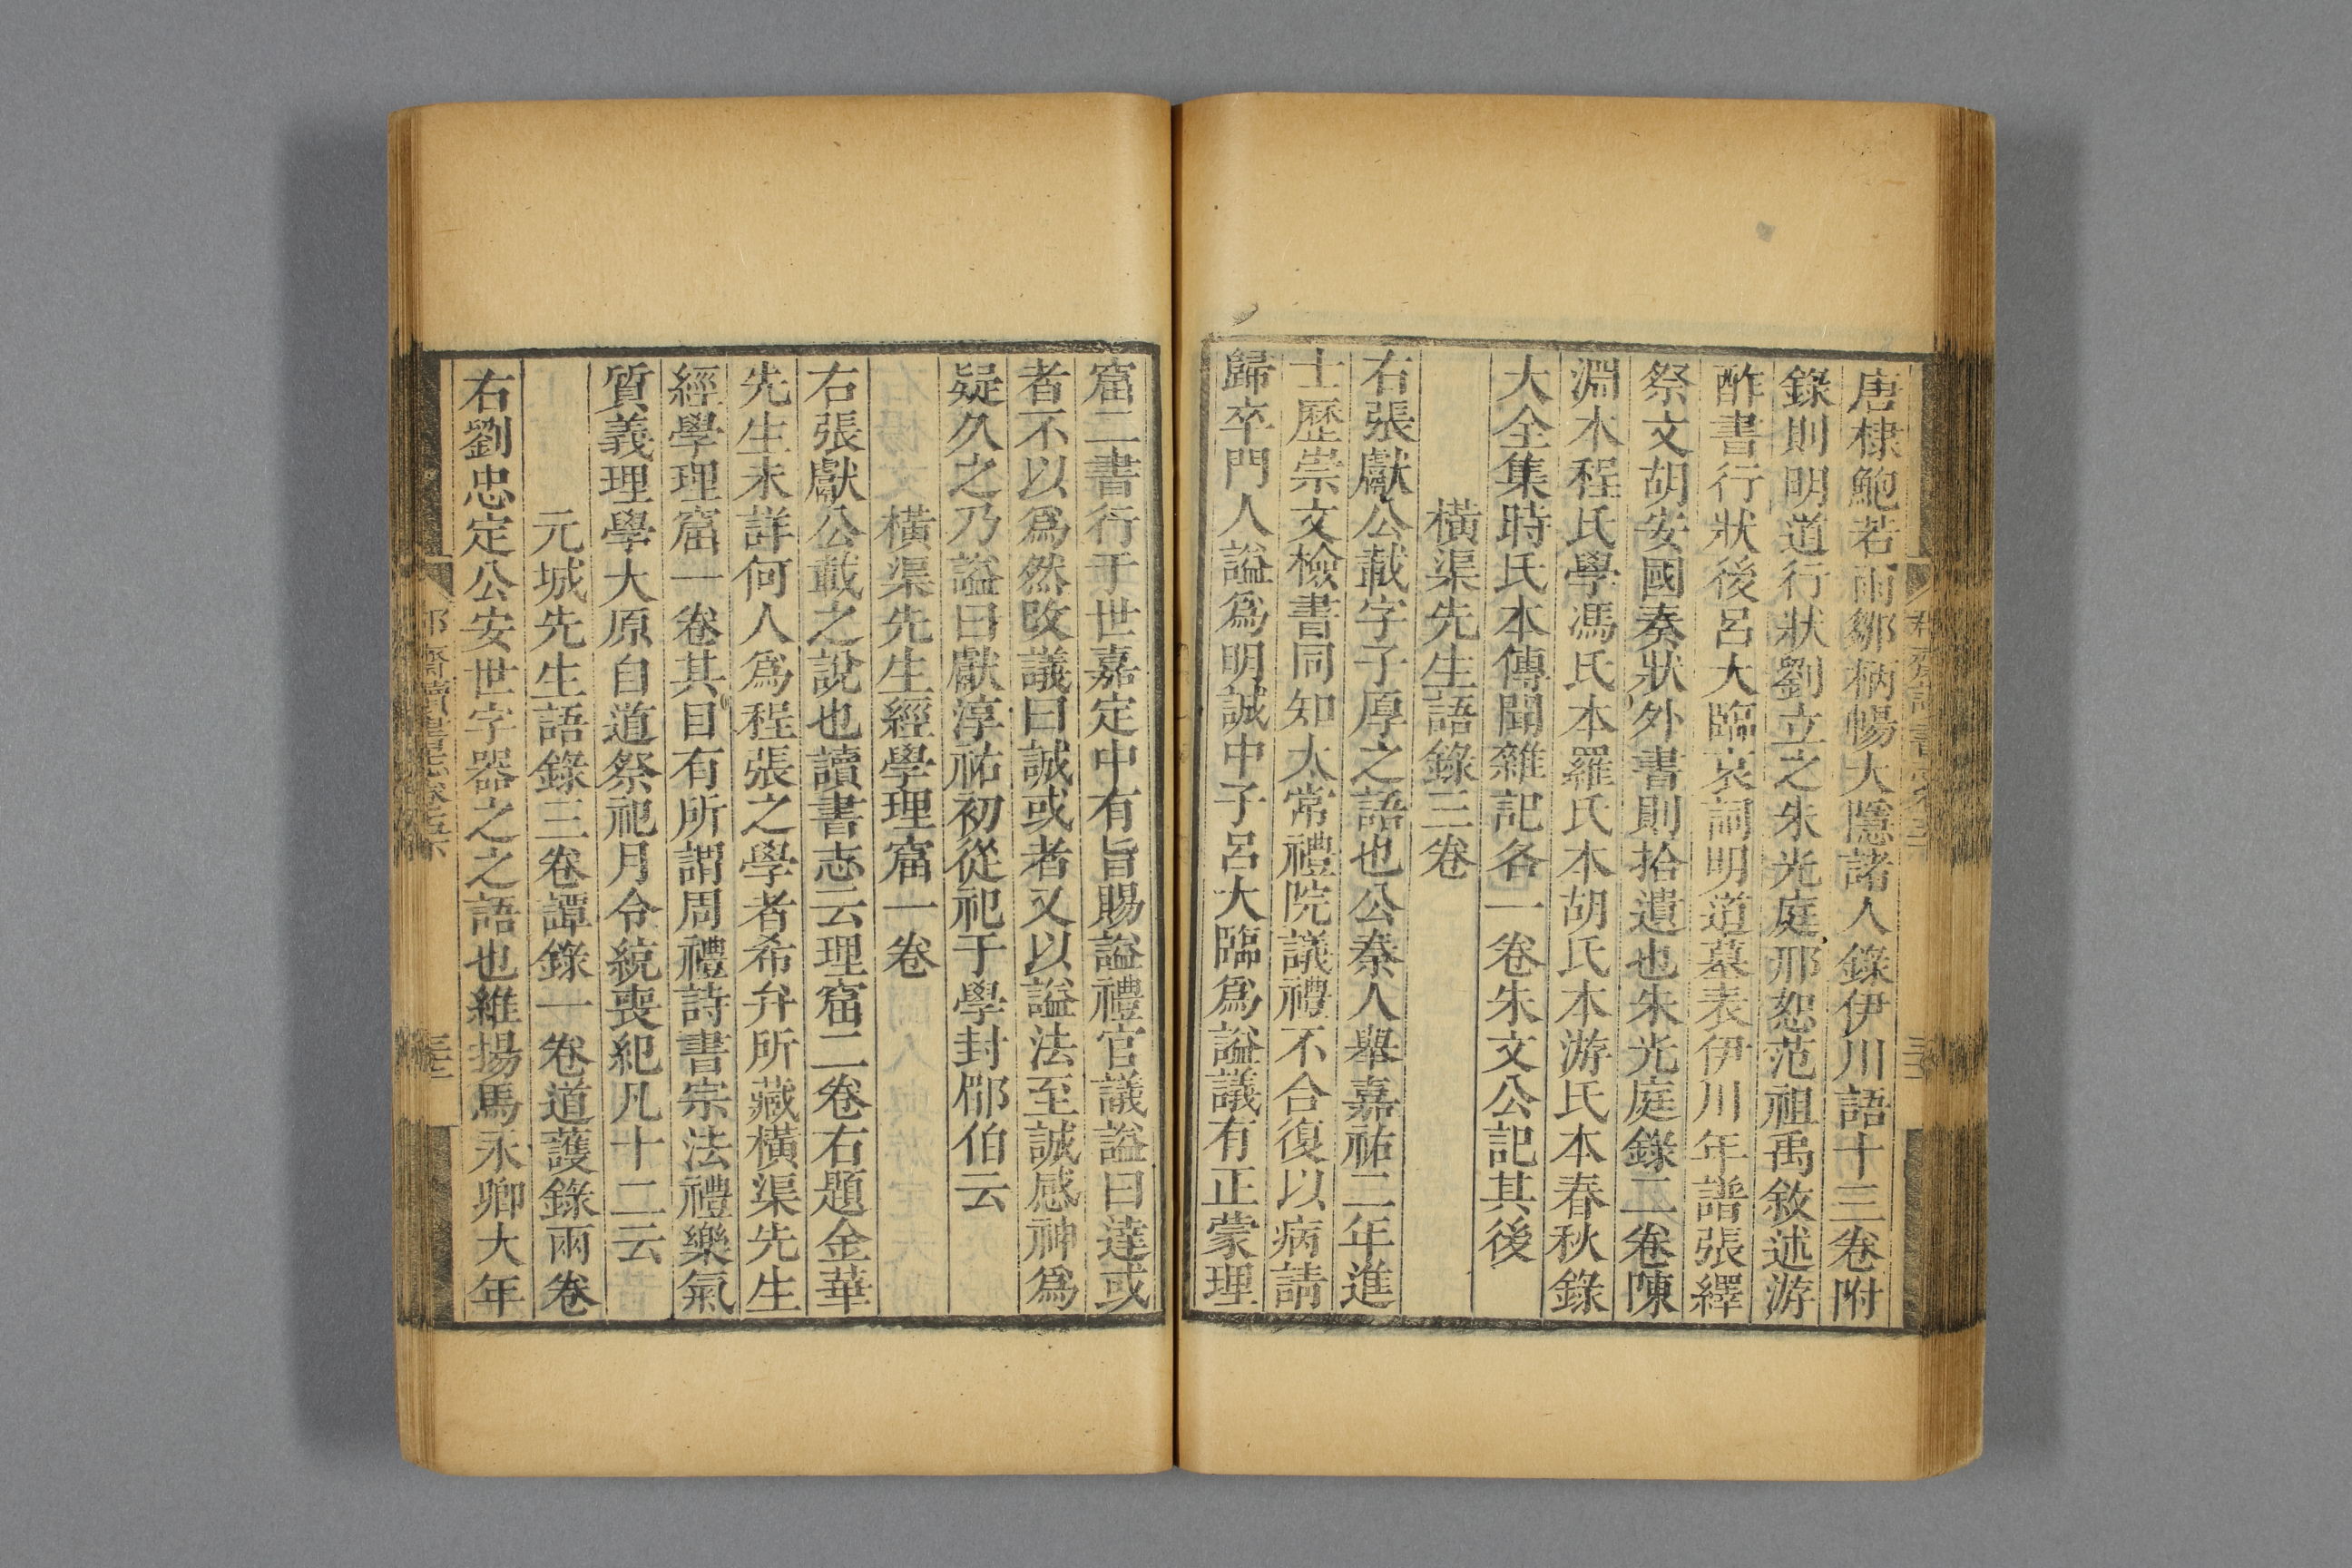 唐棣鮑若雨鄒柄暢大隱諸人錄伊川語十三卷附
錄則明道行狀劉立之朱光庭邢恕范祖禹敘述游
酢書行狀後呂大臨哀詞明道墓表伊川年譜張繹
祭文胡安國奏狀外書則拾遺也朱光庭錄二卷陳
淵本程氏學馮氏本羅氏本胡氏本游氏本春秋錄
大全集時氏本傳聞雜記各一卷朱文公記其後
橫渠先生語錄三卷
右張獻公載字子厚之語也公秦人舉嘉祐二年進
士歷崇文檢書同知太常禮院議禮不合復以病請
歸卒門人謚爲明誠中子呂大臨爲謚議有正蒙理
窟二書行于世嘉定中有旨賜謚禮官議謚曰達或
者不以爲然改議曰誠或者又以謚法至誠感神爲
疑久之乃謚曰獻淳祐初從祀于學封郿伯云
橫渠先生經學理窟一卷
右張獻公載之說也讀書志云理窟二卷右題金華
先生未詳何人爲程張之學者希弁所藏橫渠先生
經學理窟一卷其目有所謂周禮詩書宗法禮樂氣
質義理學大原自道祭祀月令統喪紀凡十二云
元城先生語錄三卷譚錄一卷道護錄兩卷
右劉忠定公安世字器之之語也維揚馬永卿大年
讀書志卷五下